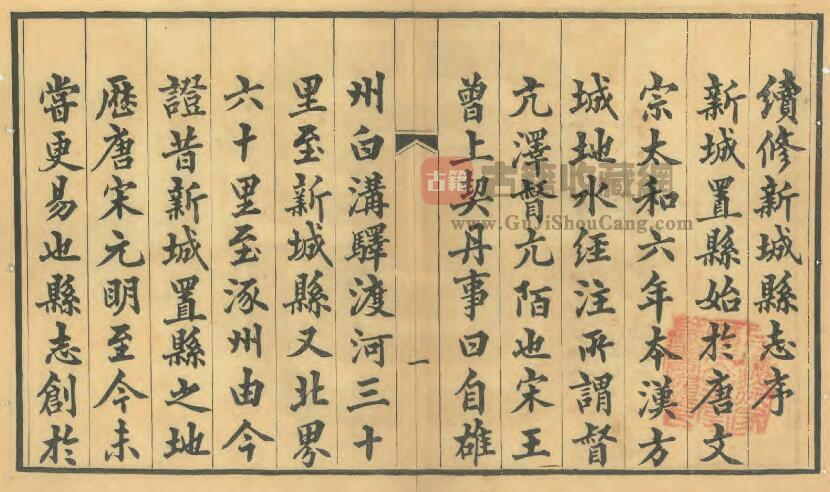 續修新城縣志序
新城置縣始於唐文
宗太和六年本漢方
城地水經注所謂督
亢澤督亢陌也宋王
曾上契丹事曰自雄
一
州白溝驛渡河三十
里至新城縣又北界
六十里至涿州由今
證昔新城置縣之地
歷唐宋元明至今未
嘗更易也縣志創於
古籍
古籍收藏網
www.GuJiShouCang.com